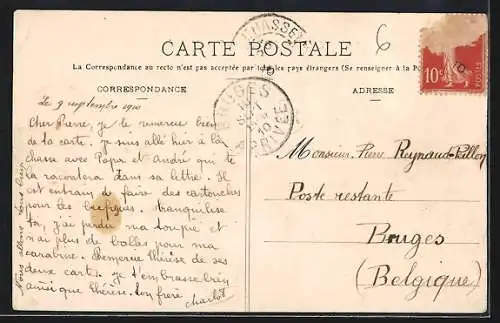 CARTE POSTALE
La Correspondance au recto n'est pas acceptée par tous les pays étrangers (Se renseigner à la
CORRESPONDANCE
ADRESSE
6
10c
BRUGES
ARRIVÉE
Le 9 septembre 1910
Cher Pierre, je te remercie bien
de ta carte. Je suis allé hier à la
chasse avec Papa et André qui te
la racontera dans sa lettre. Il
est entrain de faire des cartouches
pour les tranquilise
toi, j'ai perdu ma toupie et
n'ai plus de balles pour ma
carabine. Remercie Thérèse de ses
deux cartes. je t'embrasse bien
ainsi que Thérèse. ton frère
Charlot
Nous allons tous bien
Monsieur Pierre Reynaud
Poste restante
Bruges
(Belgique)